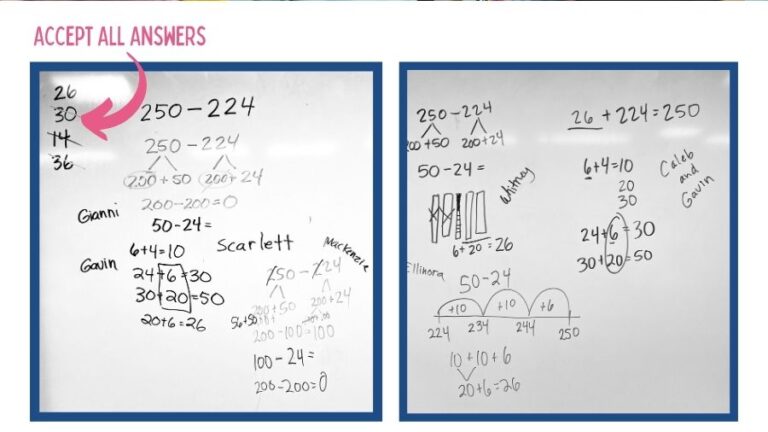 ACCEPT ALL ANSWERS
26
30
14
36
250-224
250-224
200+50 200+24
200-200=0
Gianni
50-24=
6+4=10
Scarlett
Mackenzie
Gavin
24+6=30
30+20=50
20+6=26
56+50
250-224
200+50 200+24
200-100=100
100-24=
200-200=0
250-224
200+50 200+24
50-24=
Whitney
6+20=26
Ellinora
50-24
+10 +10 +6
224 234 244 250
10+10+6
20+6=26
26+224=250
6+4=10
20
30
Caleb
and
Gavin
24+6=30
30+20=50